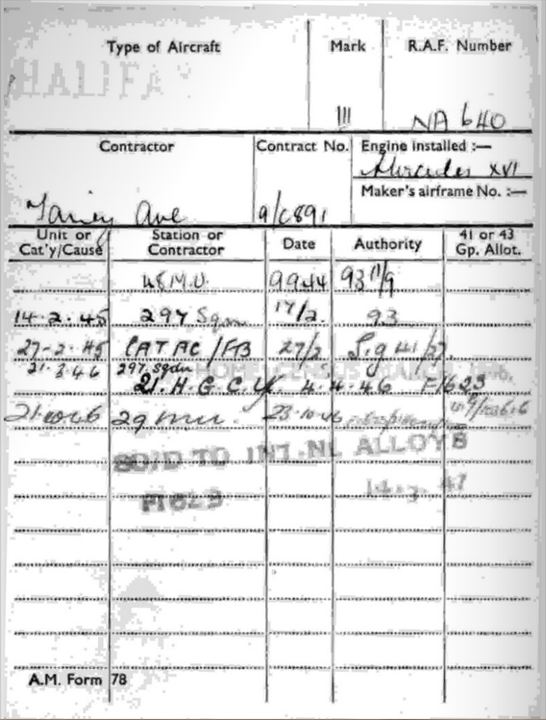 Type of Aircraft Mark R.A.F. Number
HALIFAX
III NA 640
Contractor Contract No. Engine installed :—
Hercules XVI
Maker's airframe No. :—
Fairey Ave 9/C891
Unit or Cat'y/Cause Station or Contractor Date Authority 41 or 43 Gp. Allot.
48 M.U. 9944 93 11/9
14·2·45 297 Sqdn 17/2. 93
27-2-45 CAT AC/FB 27/2 Sig 41/27.
21·3·46 297 Sqdn HOME CENSUS MARCH, 1946.
21. H.G.C.U. 4.4.46 F1623
21 Oct 6 29 MU. 23·10·46
SOLD TO INT.NL ALLOYS
14·3·47
A.M. Form 78